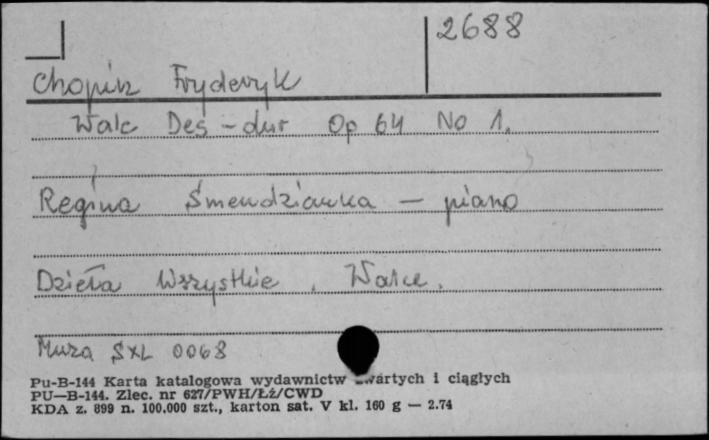 2688
Chopin Fryderyk
Walc Des-dur Op 64 No 1.
Regina Smendzianka — piano
Dzieła Wszystkie. Walce.
Muza SXL 0068
Pu-B-144 Karta katalogowa wydawnictw zwartych i ciągłych
PU—B-144. Zlec. nr 627/PWH/Łź/CWD
KDA z. 899 n. 100.000 szt., karton sat. V kl. 160 g — 2.74